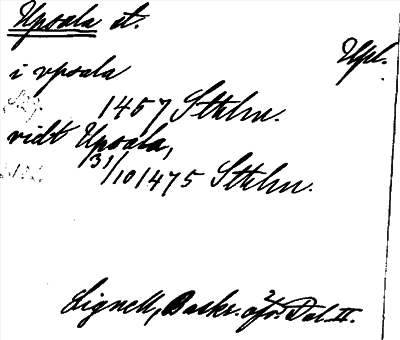 Upsala st.
Upl.
i vpsala
1467 Sthlm.
vidt Upsala,
31/10 1475 Sthlm.
Lignell, Beskr. öfv. Dal. II.